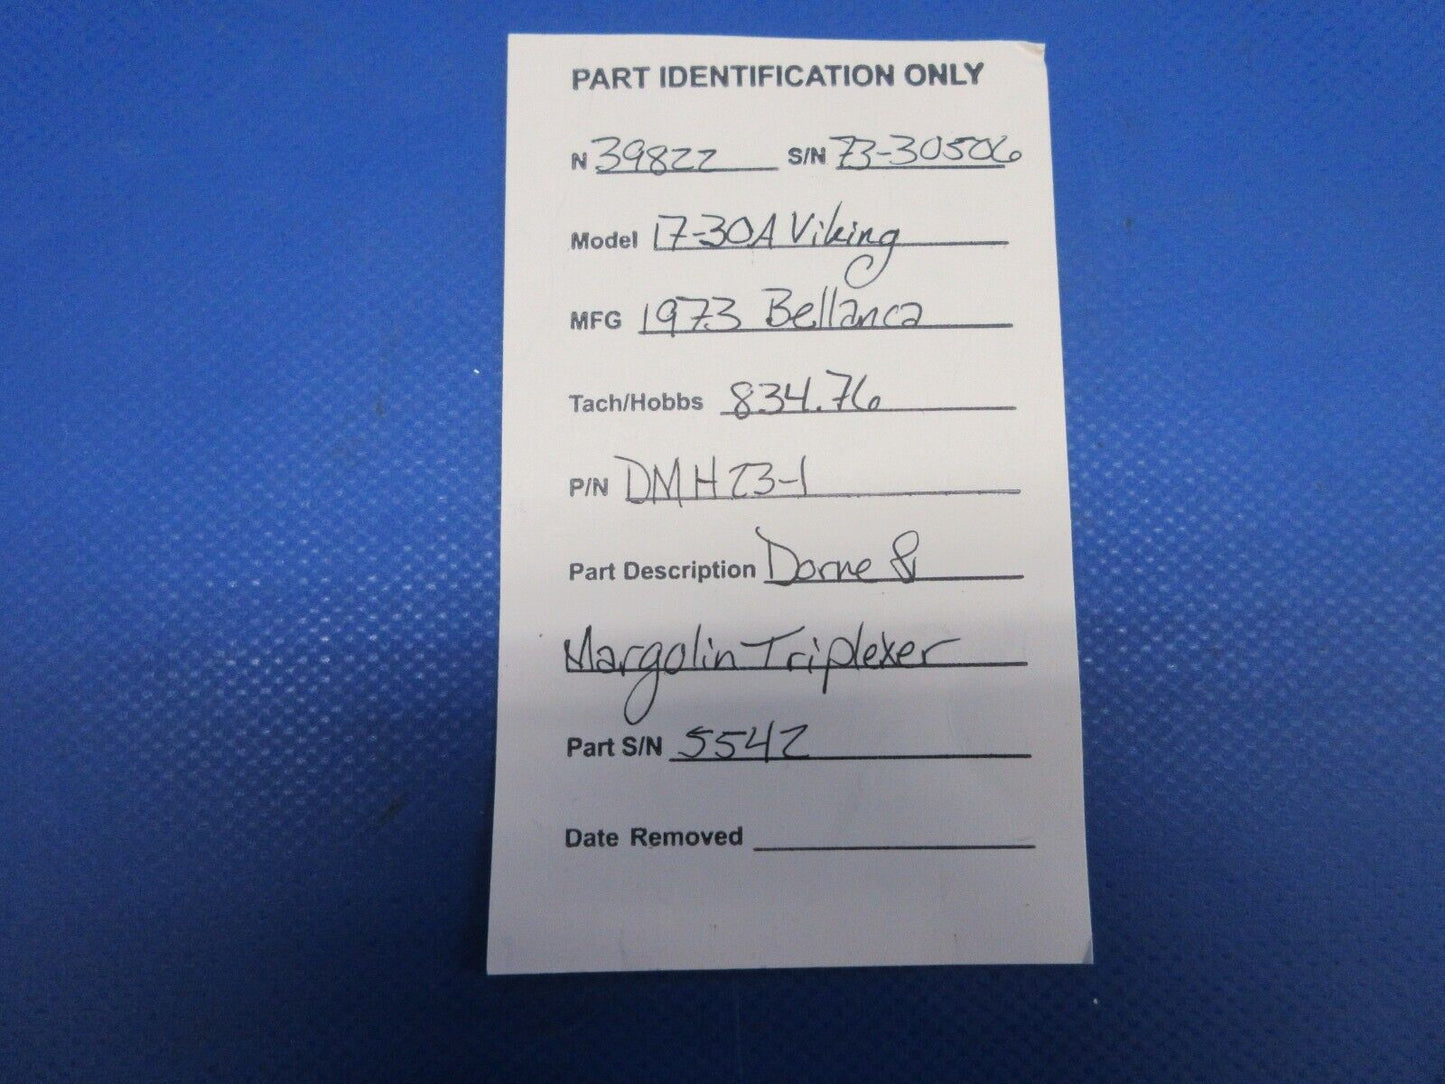 PART IDENTIFICATION ONLY
N 39822 S/N 73-30506
Model 17-30A Viking
MFG 1973 Bellanca
Tach/Hobbs 834.76
P/N DMH23-1
Part Description Dorne &
Margolin Triplexer
Part S/N 5542
Date Removed